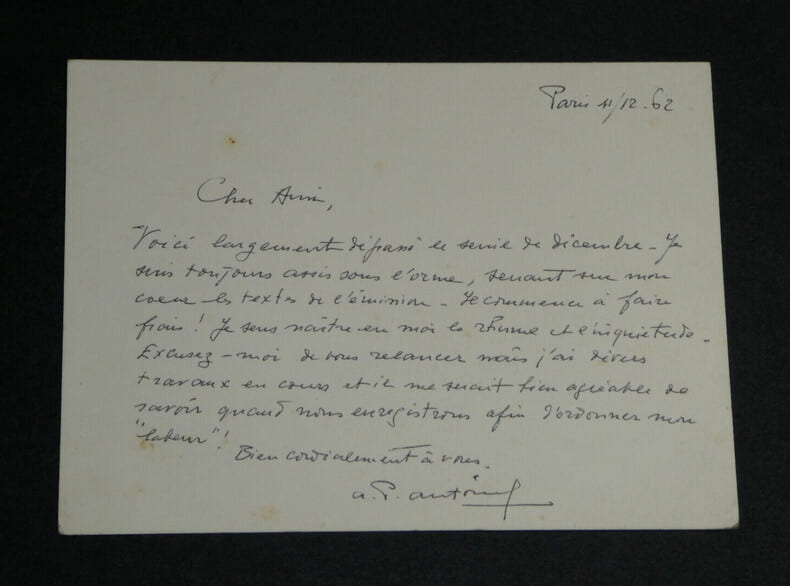 Paris 11/12.62
Cher Ami,
Voici largement dépassé le seuil de décembre - Je
suis toujours assis sous l'orme, serrant sur mon
coeur les textes de l'émission - Je commence à faire
froid! Je sens naître en moi le rhume et l'inquiétude.
Excusez-moi de vous relancer mais j'ai divers
travaux en cours et il me serait bien agréable de
savoir quand nous enregistrons afin d'ordonner mon
"labeur"!
Bien cordialement à vous.
a. P. antoine